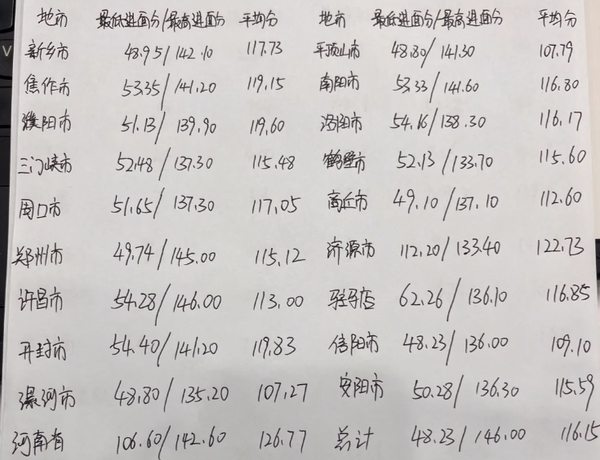 地市 最低进面分/最高进面分 平均分 地市 最低进面分/最高进面分 平均分
新乡市 48.95/142.10 117.73 平顶山市 48.80/141.30 107.79
焦作市 53.35/141.20 119.15 南阳市 53.33/141.60 116.80
濮阳市 51.13/139.90 119.60 洛阳市 54.16/138.30 116.17
三门峡市 52.48/137.30 115.48 鹤壁市 52.13/133.70 115.60
周口市 51.65/137.30 117.05 商丘市 49.10/137.10 112.60
郑州市 49.74/145.00 115.12 济源市 112.20/133.40 122.73
许昌市 54.28/146.00 113.00 驻马店 62.26/136.10 116.85
开封市 54.40/141.20 119.83 信阳市 48.23/136.00 109.10
漯河市 48.80/135.20 107.27 安阳市 50.28/136.30 115.59
河南省 106.60/142.60 126.77 总计 48.23/146.00 116.15